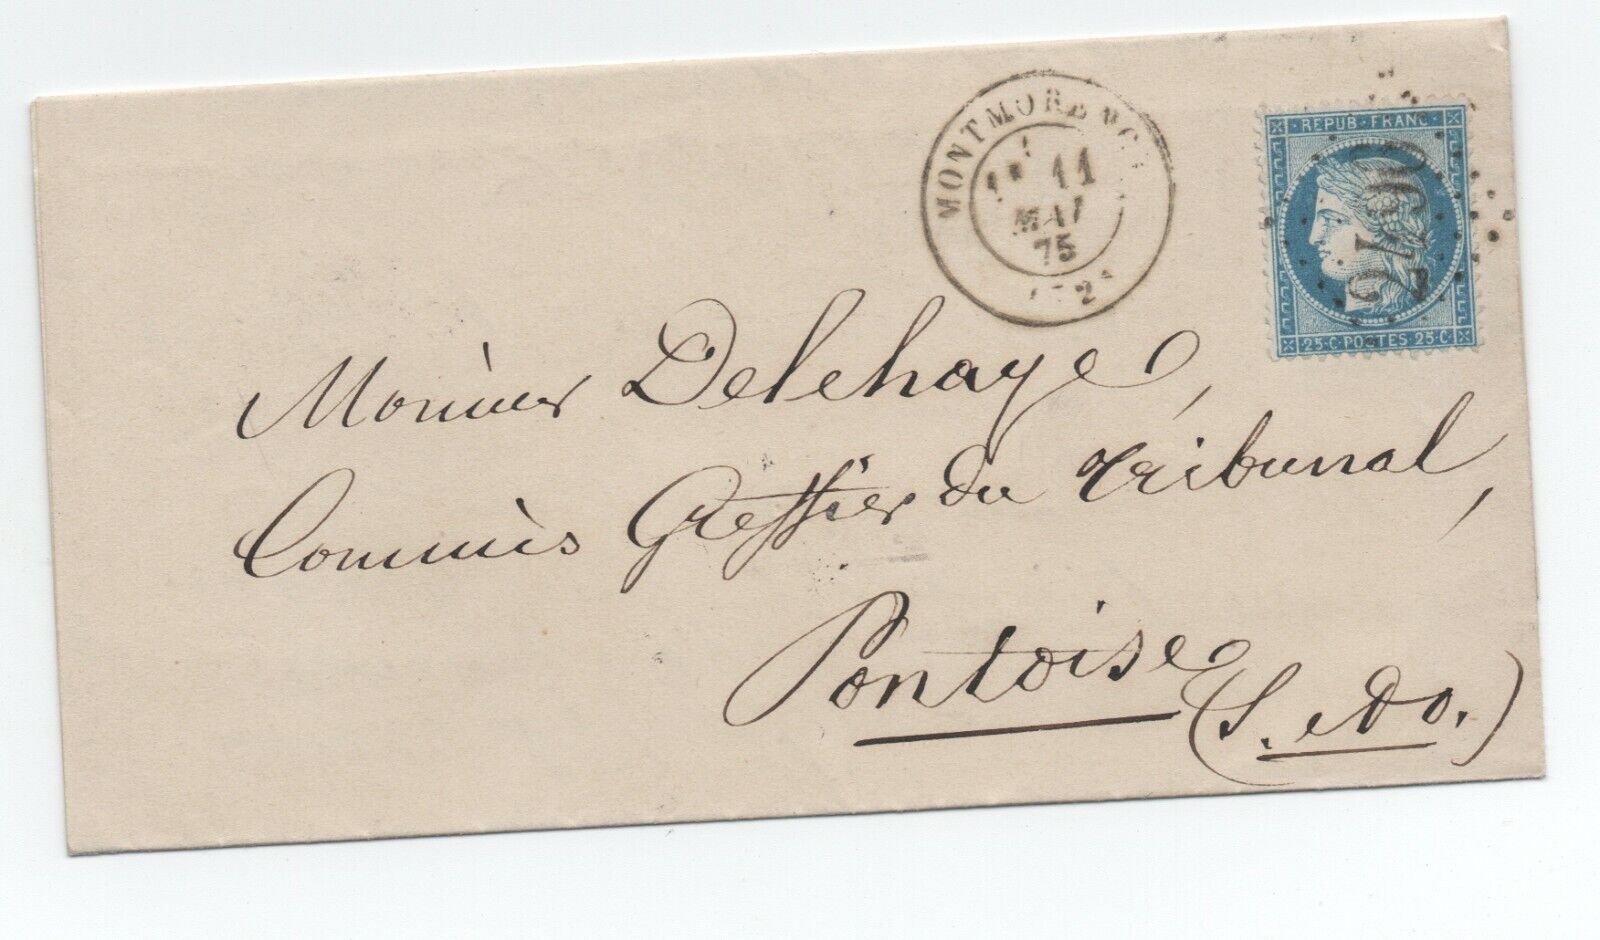 MONTMORENCY
1E 11
MAI
75
REPUB · FRANC
2496
25 · C · POSTES 25 · C
Monsieur Delehaye,
Commis Greffier du tribunal,
Pontoise
(S. et O.)